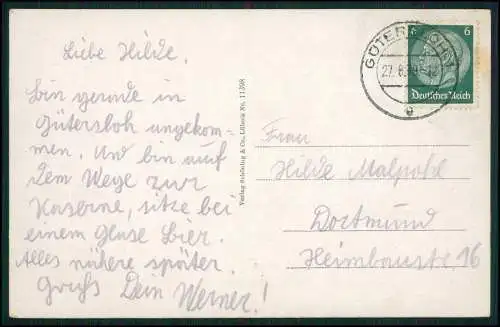 Liebe Hilde,
bin gerade in
Gütersloh angekom-
men. Und bin auf
dem Wege zur
Kaserne, sitze bei
einem Glase Bier.
Alles nähere später.
Gruß Dein Werner!
Verlag Schöning & Co., Lübeck No. 11398
GÜTERSLOH
27.8.39
e
6
Deutsches Reich
Frau
Hilde
Dortmund
Heimbaustr. 16